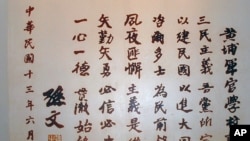 黃埔軍官學校
三民主義吾黨所宗
以建民國以進大同
咨爾多士為民前鋒
夙夜匪懈主義是從
矢勤矢勇必信必忠
一心一德貫徹始終
孫文
中華民國十三年六月
AP